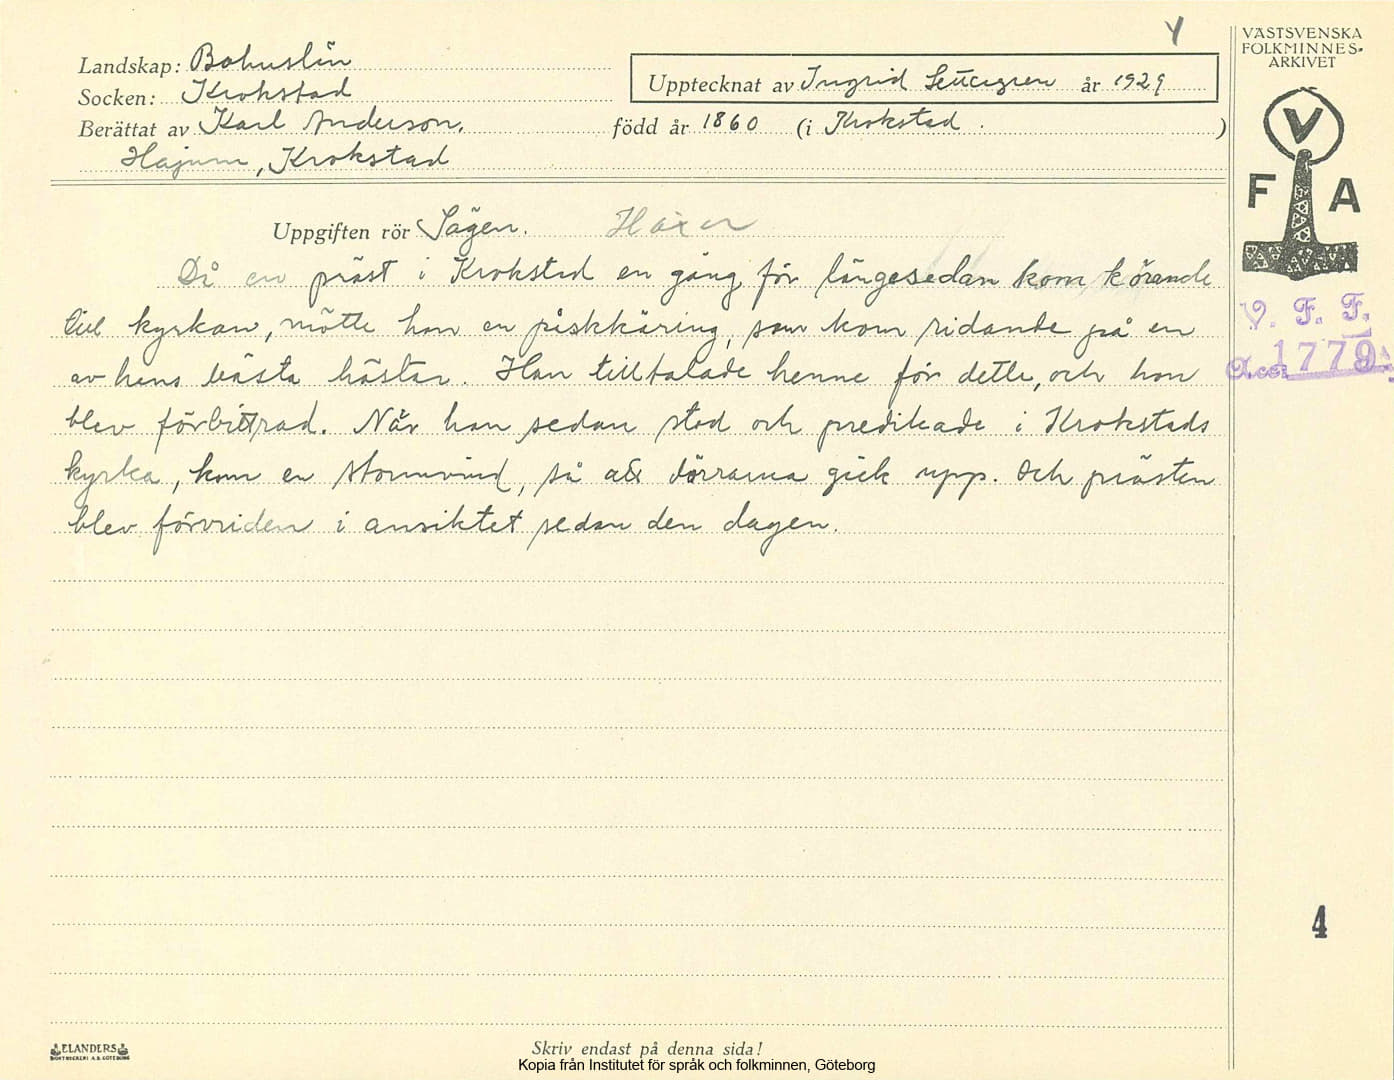 Y
VÄSTSVENSKA
FOLKMINNES-
ARKIVET
Landskap: Bohuslän
Upptecknat av Ingrid år 1929
Socken: Krokstad
Berättat av Karl Anderson. född år 1860 (i Krokstad . )
Hajum, Krokstad
V
F A
Uppgiften rör Sägen. Häxor
Då en präst i Krokstad en gång för längesedan kom körande
till kyrkan, mötte han en påskkäring, som kom ridande på en
av hans bästa hästar. Han tilltalade henne för detta, och hon
blev förbittrad. När han sedan stod och predikade i Krokstads
kyrka, kom en stormvind, så att dörrarna gick upp. Och prästen
blev förvriden i ansiktet sedan den dagen.
V. F. F.
Acc. 1779
4
ELANDERS
BOKTRYCKERI A.B. GÖTEBORG
Skriv endast på denna sida!
Kopia från Institutet för språk och folkminnen, Göteborg